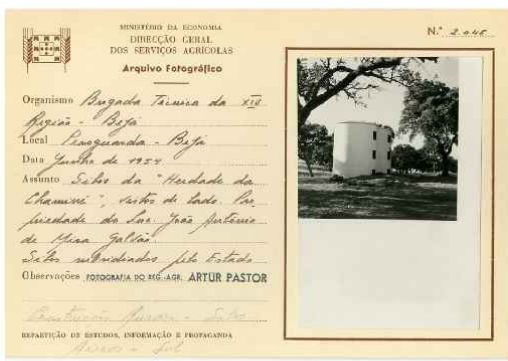 MINISTÉRIO DA ECONOMIA
DIRECÇÃO GERAL
DOS SERVIÇOS AGRÍCOLAS
Arquivo Fotográfico
N.º 2.046
Organismo Brigada Técnica da XIV
Região - Beja
Local Peroguarda - Beja
Data Junho de 1954
Assunto Silos da "Herdade da
", vistos de lado. Pro
priedade do Snr. João António
de Mira Galvão.
Silos subsidiados pelo Estado
Observações FOTOGRAFIA DO REG. AGR. ARTUR PASTOR
Construções Rurais - Silos
REPARTIÇÃO DE ESTUDOS, INFORMAÇÃO E PROPAGANDA
Sul